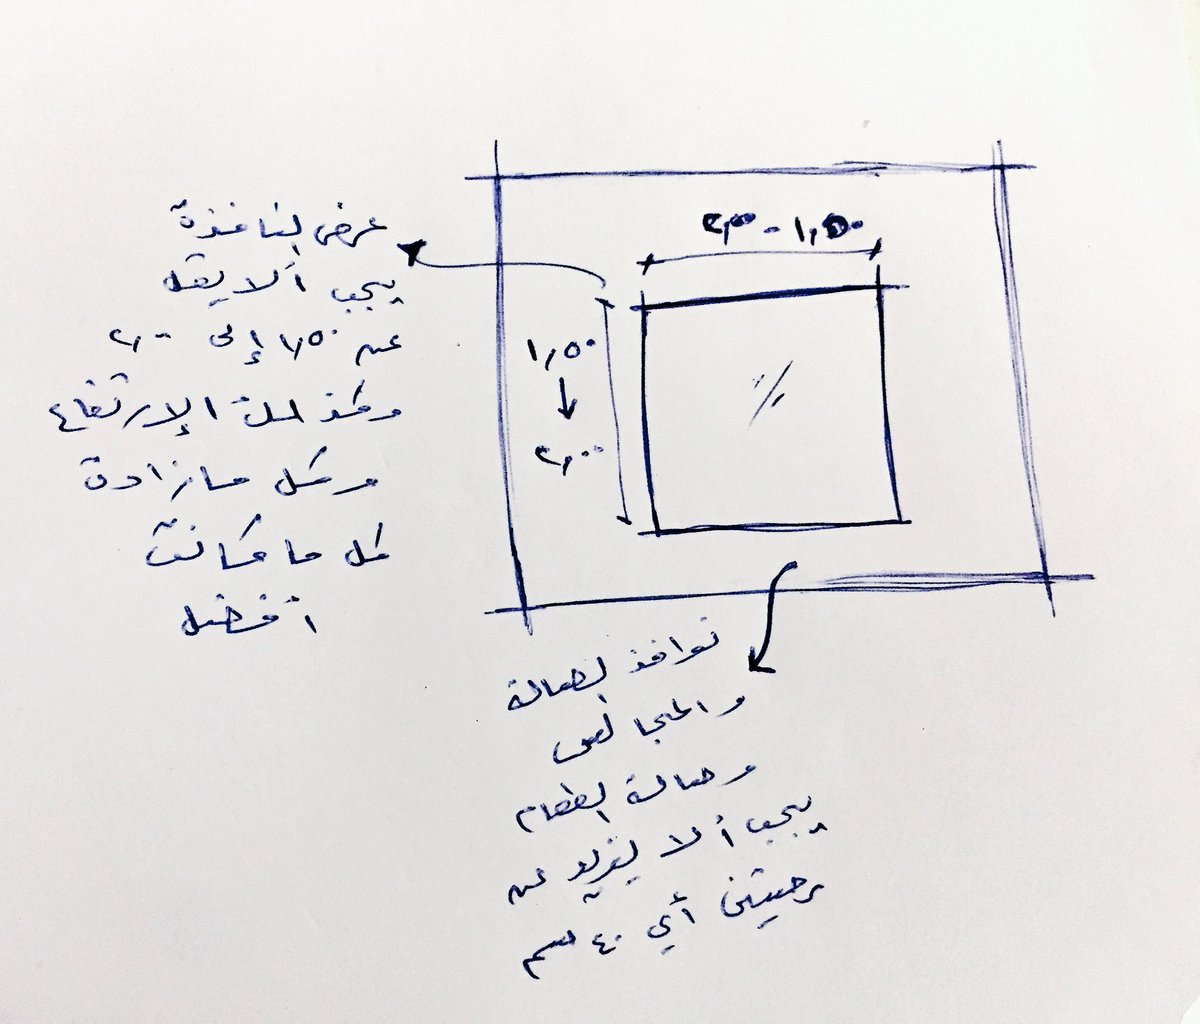 ١,٥٠ - ٢,٠٠
١,٥٠
٢,٠٠
عرض النافذة
يجب ألا يقل
عن ١,٥٠ إلى ٢,٠٠
وكذلك الإرتفاع
وكل ما زادة
كل ما كانت
أفضل
نوافذ الصالة
والمجالس
وصالة الطعام
يجب ألا يزيد عن
رديتين أي ٤٠ سم